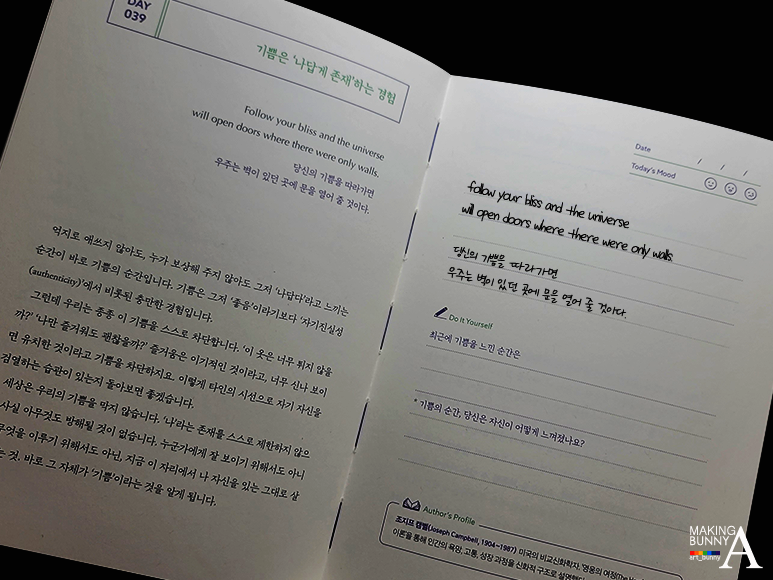 DAY
039
기쁨은 '나답게 존재'하는 경험
Follow your bliss and the universe
will open doors where there were only walls.
당신의 기쁨을 따라가면
우주는 벽이 있던 곳에 문을 열어 줄 것이다.
억지로 애쓰지 않아도, 누가 보상해 주지 않아도 그저 '나답다'라고 느끼는
순간이 바로 기쁨의 순간입니다. 기쁨은 그저 '좋음'이라기보다 '자기진실성
(authenticity)'에서 비롯된 충만한 경험입니다.
그런데 우리는 종종 이 기쁨을 스스로 차단합니다. '이 옷은 너무 튀지 않을
까?' '나만 즐거워도 괜찮을까?' 즐거움은 이기적인 것이라고, 너무 신나 보이
면 유치한 것이라고 기쁨을 차단하지요. 이렇게 타인의 시선으로 자기 자신을
검열하는 습관이 있는지 돌아보면 좋겠습니다.
세상은 우리의 기쁨을 막지 않습니다. '나'라는 존재를 스스로 제한하지 않으
사실 아무것도 방해될 것이 없습니다. 누군가에게 잘 보이기 위해서도 아니
무엇을 이루기 위해서도 아닌, 지금 이 자리에서 나 자신을 있는 그대로 살
는 것. 바로 그 자체가 '기쁨'이라는 것을 알게 됩니다.
Date / / /
Today's Mood
follow your bliss and the universe
will open doors where there were only walls.
당신의 기쁨을 따라가면
우주는 벽이 있던 곳에 문을 열어 줄 것이다.
Do It Yourself
최근에 기쁨을 느낀 순간은
* 기쁨의 순간, 당신은 자신이 어떻게 느껴졌나요?
Author's Profile
조지프 캠벨(Joseph Campbell, 1904~1987) 미국의 비교신화학자. '영웅의 여정(The
이론을 통해 인간의 욕망, 고통, 성장 과정을 신화적 구조로 설명했다
MAKING
BUNNY
art_bunny
A